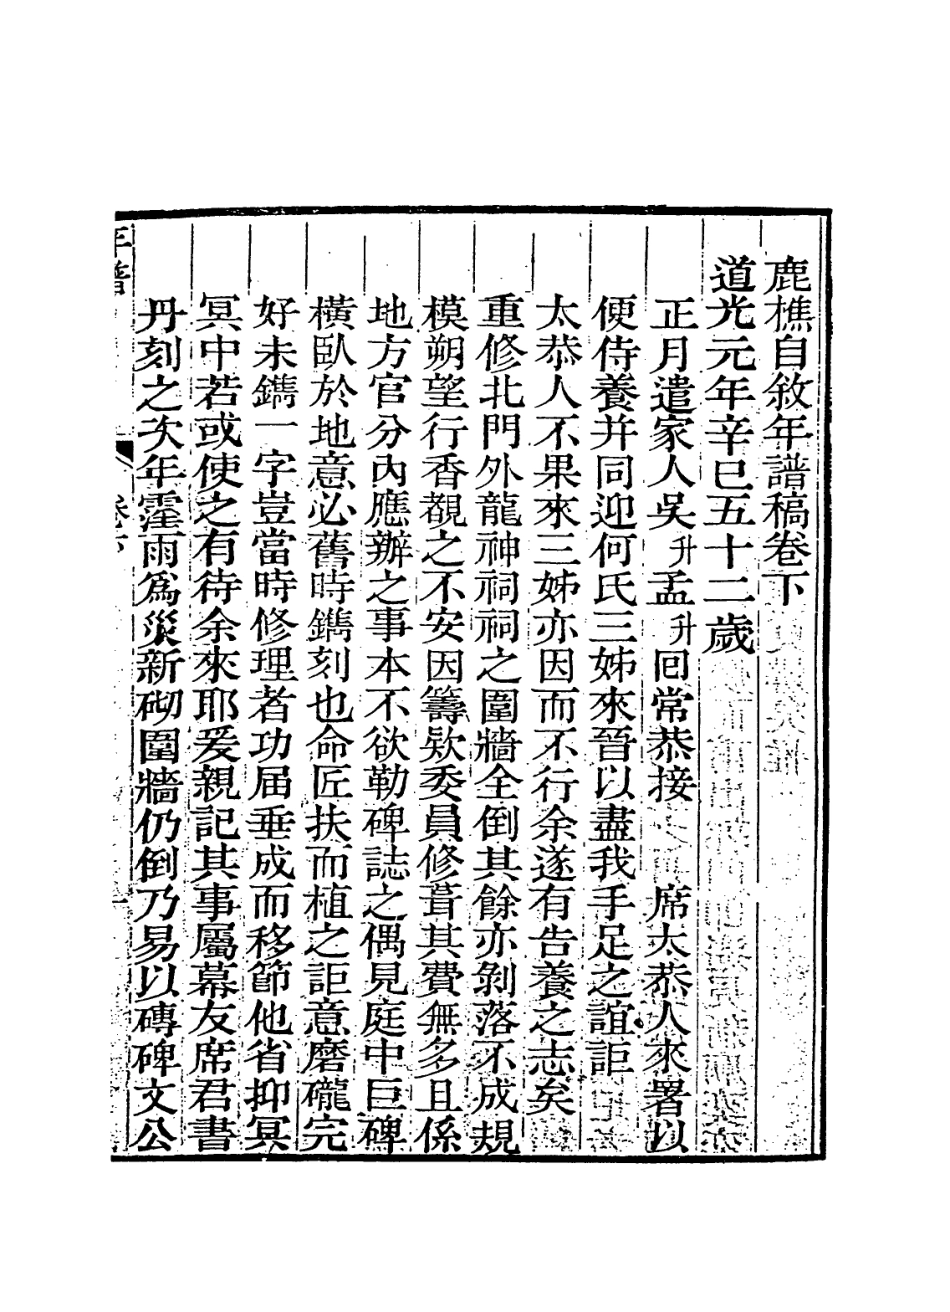 鹿樵自敘年譜稿卷下
道光元年辛巳五十二歲
正月遣家人吳升孟升囘常恭接　席太恭人來署以
便侍養并同迎何氏三姊來晉以盡我手足之誼詎
太恭人不果來三姊亦因而不行余遂有告養之志矣
重修北門外龍神祠祠之圍牆全倒其餘亦剝落不成規
模朔望行香覩之不安因籌欵委員修葺其費無多且係
地方官分內應辦之事本不欲勒碑誌之偶見庭中巨碑
橫臥於地意必舊時鐫刻也命匠扶而植之詎意磨礲完
好未鐫一字豈當時修理者功届垂成而移節他省抑冥
冥中若或使之有待余來耶爰親記其事屬幕友席君書
丹刻之次年霪雨爲災新砌圍牆仍倒乃易以磚碑文公
年譜
卷下